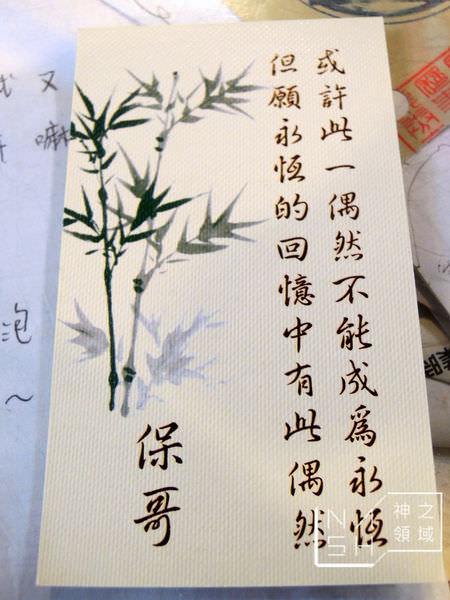 或許此一偶然不能成為永恆
但願永恆的回憶中有此偶然
保哥
又
嘛
泡
~
神之
領域